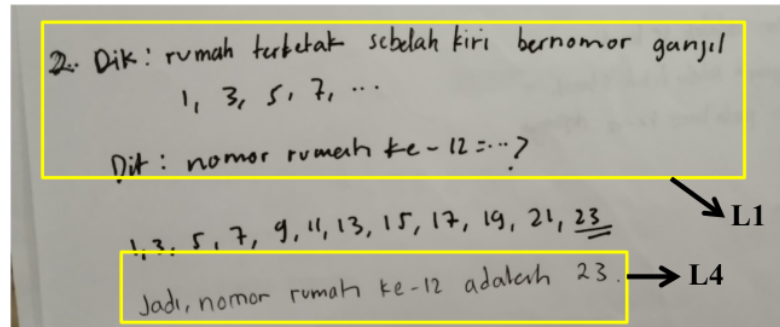 2. Dik: rumah terletak sebelah kiri bernomor ganjil
1, 3, 5, 7, ...
Dit: nomor rumah ke-12 = ...?
L1
1, 3, 5, 7, 9, 11, 13, 15, 17, 19, 21, 23
Jadi, nomor rumah ke-12 adalah 23.
L4